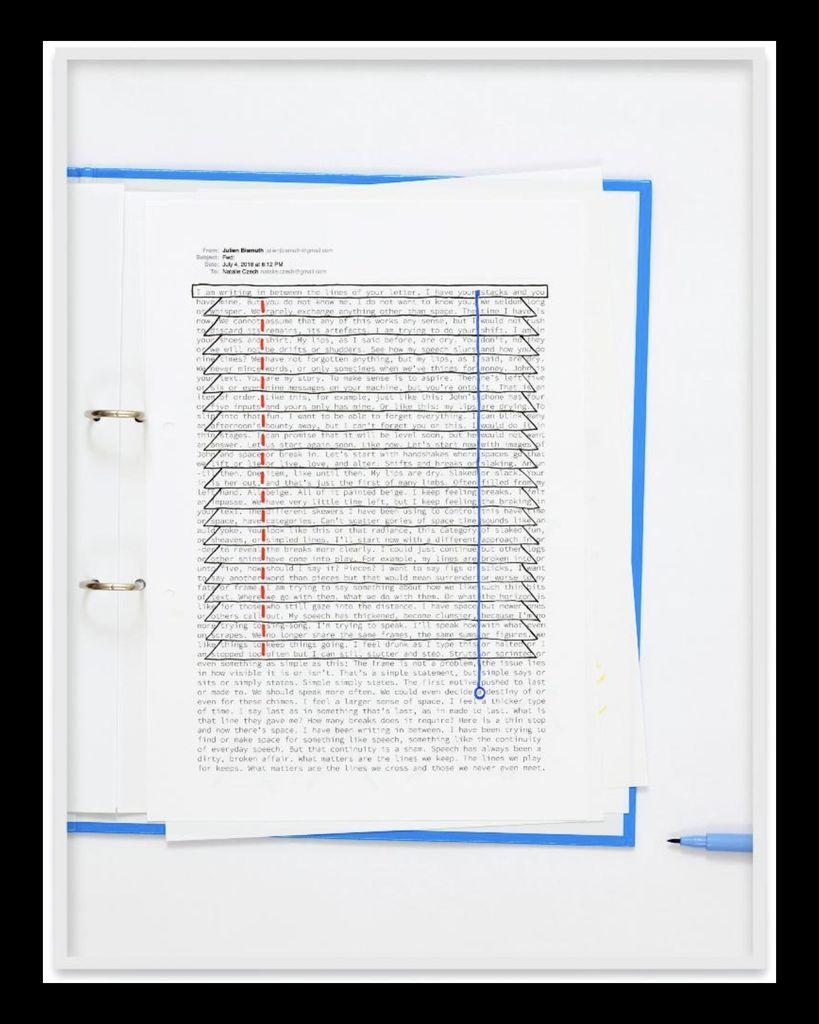 From: Julien Bismuth julienbismuth@gmail.com
Subject: Fwd:
Date: July 4, 2018 at 6:12 PM
To: Natalie Czech natalie.czech@gmail.com
I am writing in between the lines of your letter. I have your stacks and you
have mine. But you do not know me. I do not want to know you. We seldom long
or whisper. We rarely exchange anything other than space. The time I have is
now. We cannot assume that any of this works any sense, but I would not rush
to discard its remains, its artefacts. I am trying to do your shift. I am
your shoes and shirt. My lips, as I said before, are dry. You don't, nor they
or we will no be drifts or shudders. See how my speech slurs and how you
nine times? We have not forgotten anything, but my lips, as I said, are dry.
We never mince words, or only sometimes when we've things for money. John is
your text. You are my story. To make sense is to aspire. There's left five
or six or even nine messages on your machine, but you're onto it. That is an
item of order. Like this, for example, just like this: John's phone has four
or five inputs and yours only has mine. Or like this: my lips are drying. To
slip into that fun. I want to be able to forget everything I can blink many
an afternoon's bounty away, but I can't forget you or this. I would do it
thin stages. I can promise that it will be level soon, but he would not want
an answer. Let us start again soon. Like now. Let's start now with images of
John and space or break in. Let's start with handshakes where spaces go that
we lift or lie or live, love, and alter. Shifts and breaks or slaking. An un
-til then. One item, like until then. My lips are dry. Slaked or slack. Your
is her out, and that's just the first of many limbs. Often filled from my
left hand. All beige. All of it painted beige. I keep feeling breaks. I felt
an impasse. We have very little time left, but I keep feeling the broking in
your text. The different skewers I have been using to control this have time
or space, have categories. Can't scatter gories of space time sounds like an
auld yoke. You look like this or that radiance, this category of slaked fun,
or sheaves, or simpled lines. I'll start now with a different approach in
-der to reveal the breaks more clearly. I could just continue but other logs
or other ships have come into play. For example, my lines are broken into or
unto five, how should I say it? Pieces? I want to say figs or sticks. I want
to say another word than pieces but that would mean surrender or worse to my
fate or frame. I am trying to say something about how we like such thin bits
of text. Where we go with them. What we do with them. Or what the horizon is
like for those who still gaze into the distance. I have space but newer ones
or others call out. My speech has thickened, become clumsier, because I'm no
more trying to sing-song. I'm trying to speak. I'll speak now with what even
or scrapes. We no longer share the same frames, the same sums or figures, we
like things to keep things going. I feel drunk as I type this or halted or I
am stopped too often but I can still stutter and step. Struts or sprinted or
even something as simple as this: The frame is not a problem, the issue lies
in how visible it is or isn't. That's a simple statement, but simple says or
sits or simply states. Simple simply states. The first motive pushed to last
or made to. We should speak more often. We could even decide destiny of or
even for these chimes. I feel a larger sense of space. I feel a thicker type
of time. I say last as in something that's last, as in made to last. What is
that line they gave me? How many breaks does it require? Here is a thin stop
and now there's space. I have been writing in between. I have been trying to
find or make space for something like speech, something like the continuity
of everyday speech. But that continuity is a sham. Speech has always been a
dirty, broken affair. What matters are the lines we keep. The lines we play
for keeps. What matters are the lines we cross and those we never even meet.